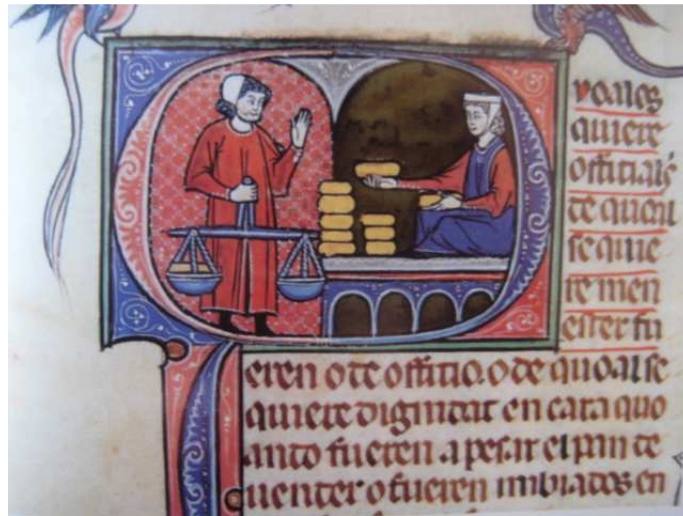 voales
quiere
officiales
de quoal
se quie
re men
ester fu
eren o de officio. o de quoal se
quiere dignitat en cara quo
ando fueren a pesar el pan de
uender o fueren imbiados en